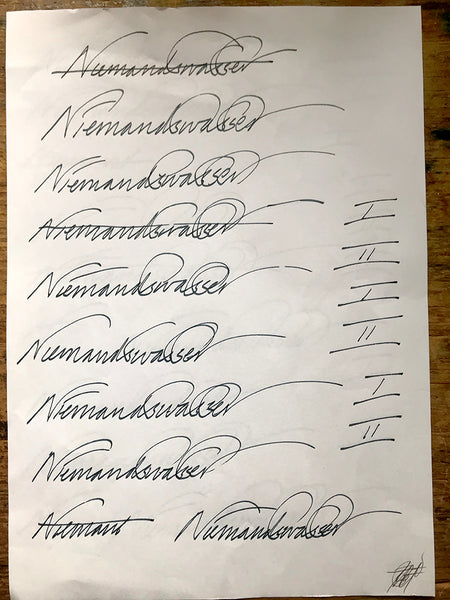 Niemandswasser
Niemandswasser
Niemandswasser
Niemandswasser I
II
Niemandswasser I
Niemandswasser II
Niemandswasser I
Niemandswasser II
Niemant Niemandswasser